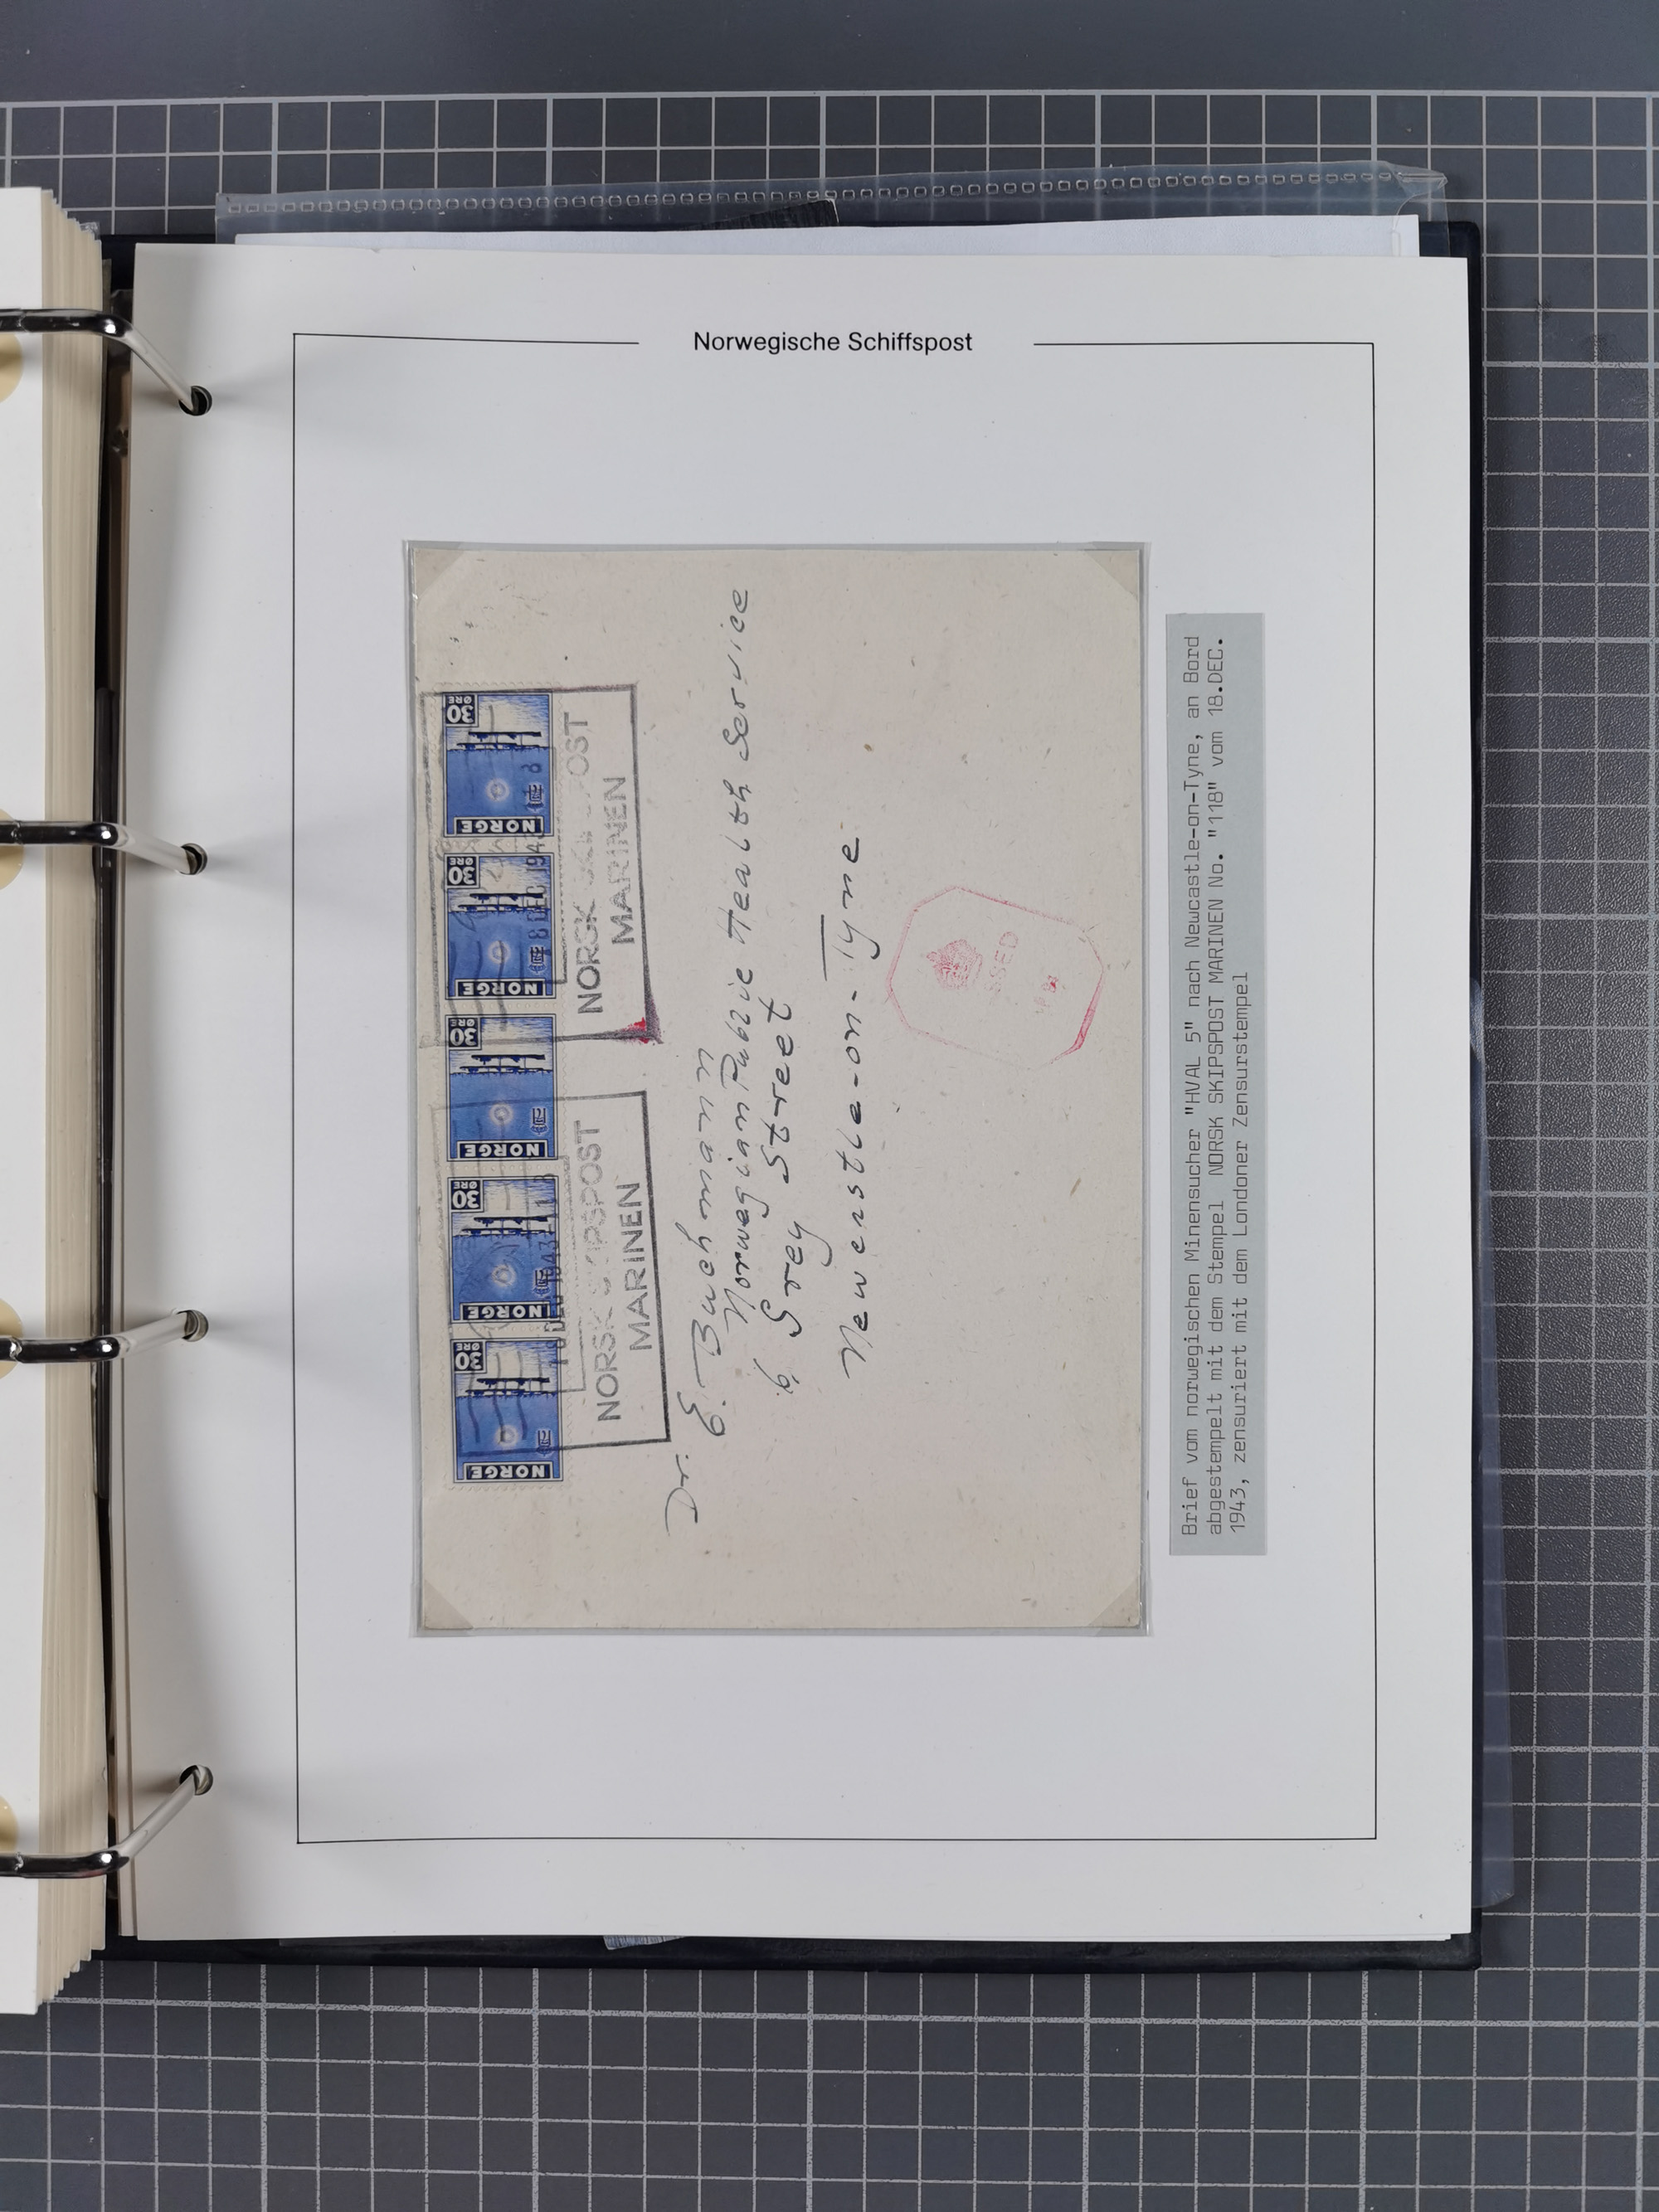 Norwegische Schiffspost
30 ØRE NORGE
30 ØRE NORGE
30 ØRE NORGE
30 ØRE NORGE
30 ØRE NORGE
18 DEC 1943
18 DEC 1943
NORSK SKIPSPOST
MARINEN
NORSK SKIPSPOST
MARINEN
Dr.
Norwegian Health Service
Grey Street
Newcastle-on-Tyne
SSED
Brief vom norwegischen Minensucher "HVAL 5" nach Newcastle-on-Tyne, an Bord
abgestempelt mit dem Stempel NORSK SKIPSPOST MARINEN No. "118" vom 18.DEC.
1943, zensuriert mit dem Londoner Zensurstempel